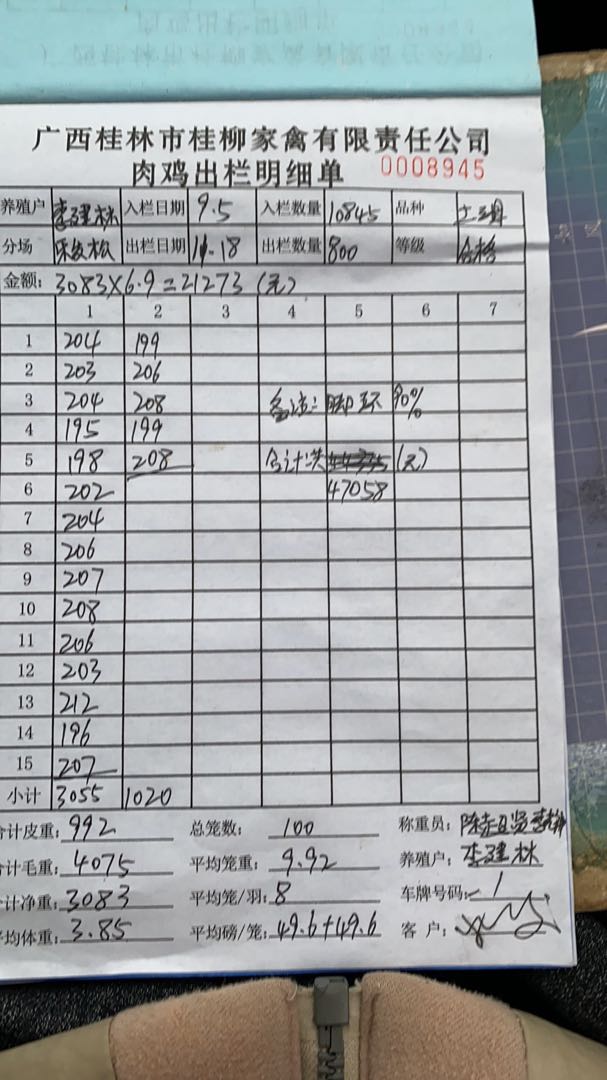 广西桂林市桂柳家禽有限责任公司
肉鸡出栏明细单 0008945
养殖户 李建林 入栏日期 9.5 入栏数量 10845 品种
分场 出栏日期 11.18 出栏数量 800 等级 合格
金额: 3083×6.9=21273(元)
1 2 3 4 5 6 7
1 204 199
2 203 206
3 204 208 备注: 脚环 90%
4 195 199
5 198 208 合计共 (元)
6 202 47058
7 204
8 206
9 207
10 208
11 206
12 203
13 212
14 196
15 207
小计 3055 1020
计皮重: 992 总笼数: 100 称重员:
计毛重: 4075 平均笼重: 9.92 养殖户: 李建林
计净重: 3083 平均笼/羽: 8 车牌号码: 1
均体重: 3.85 平均磅/笼: 49.6+49.6 客户: